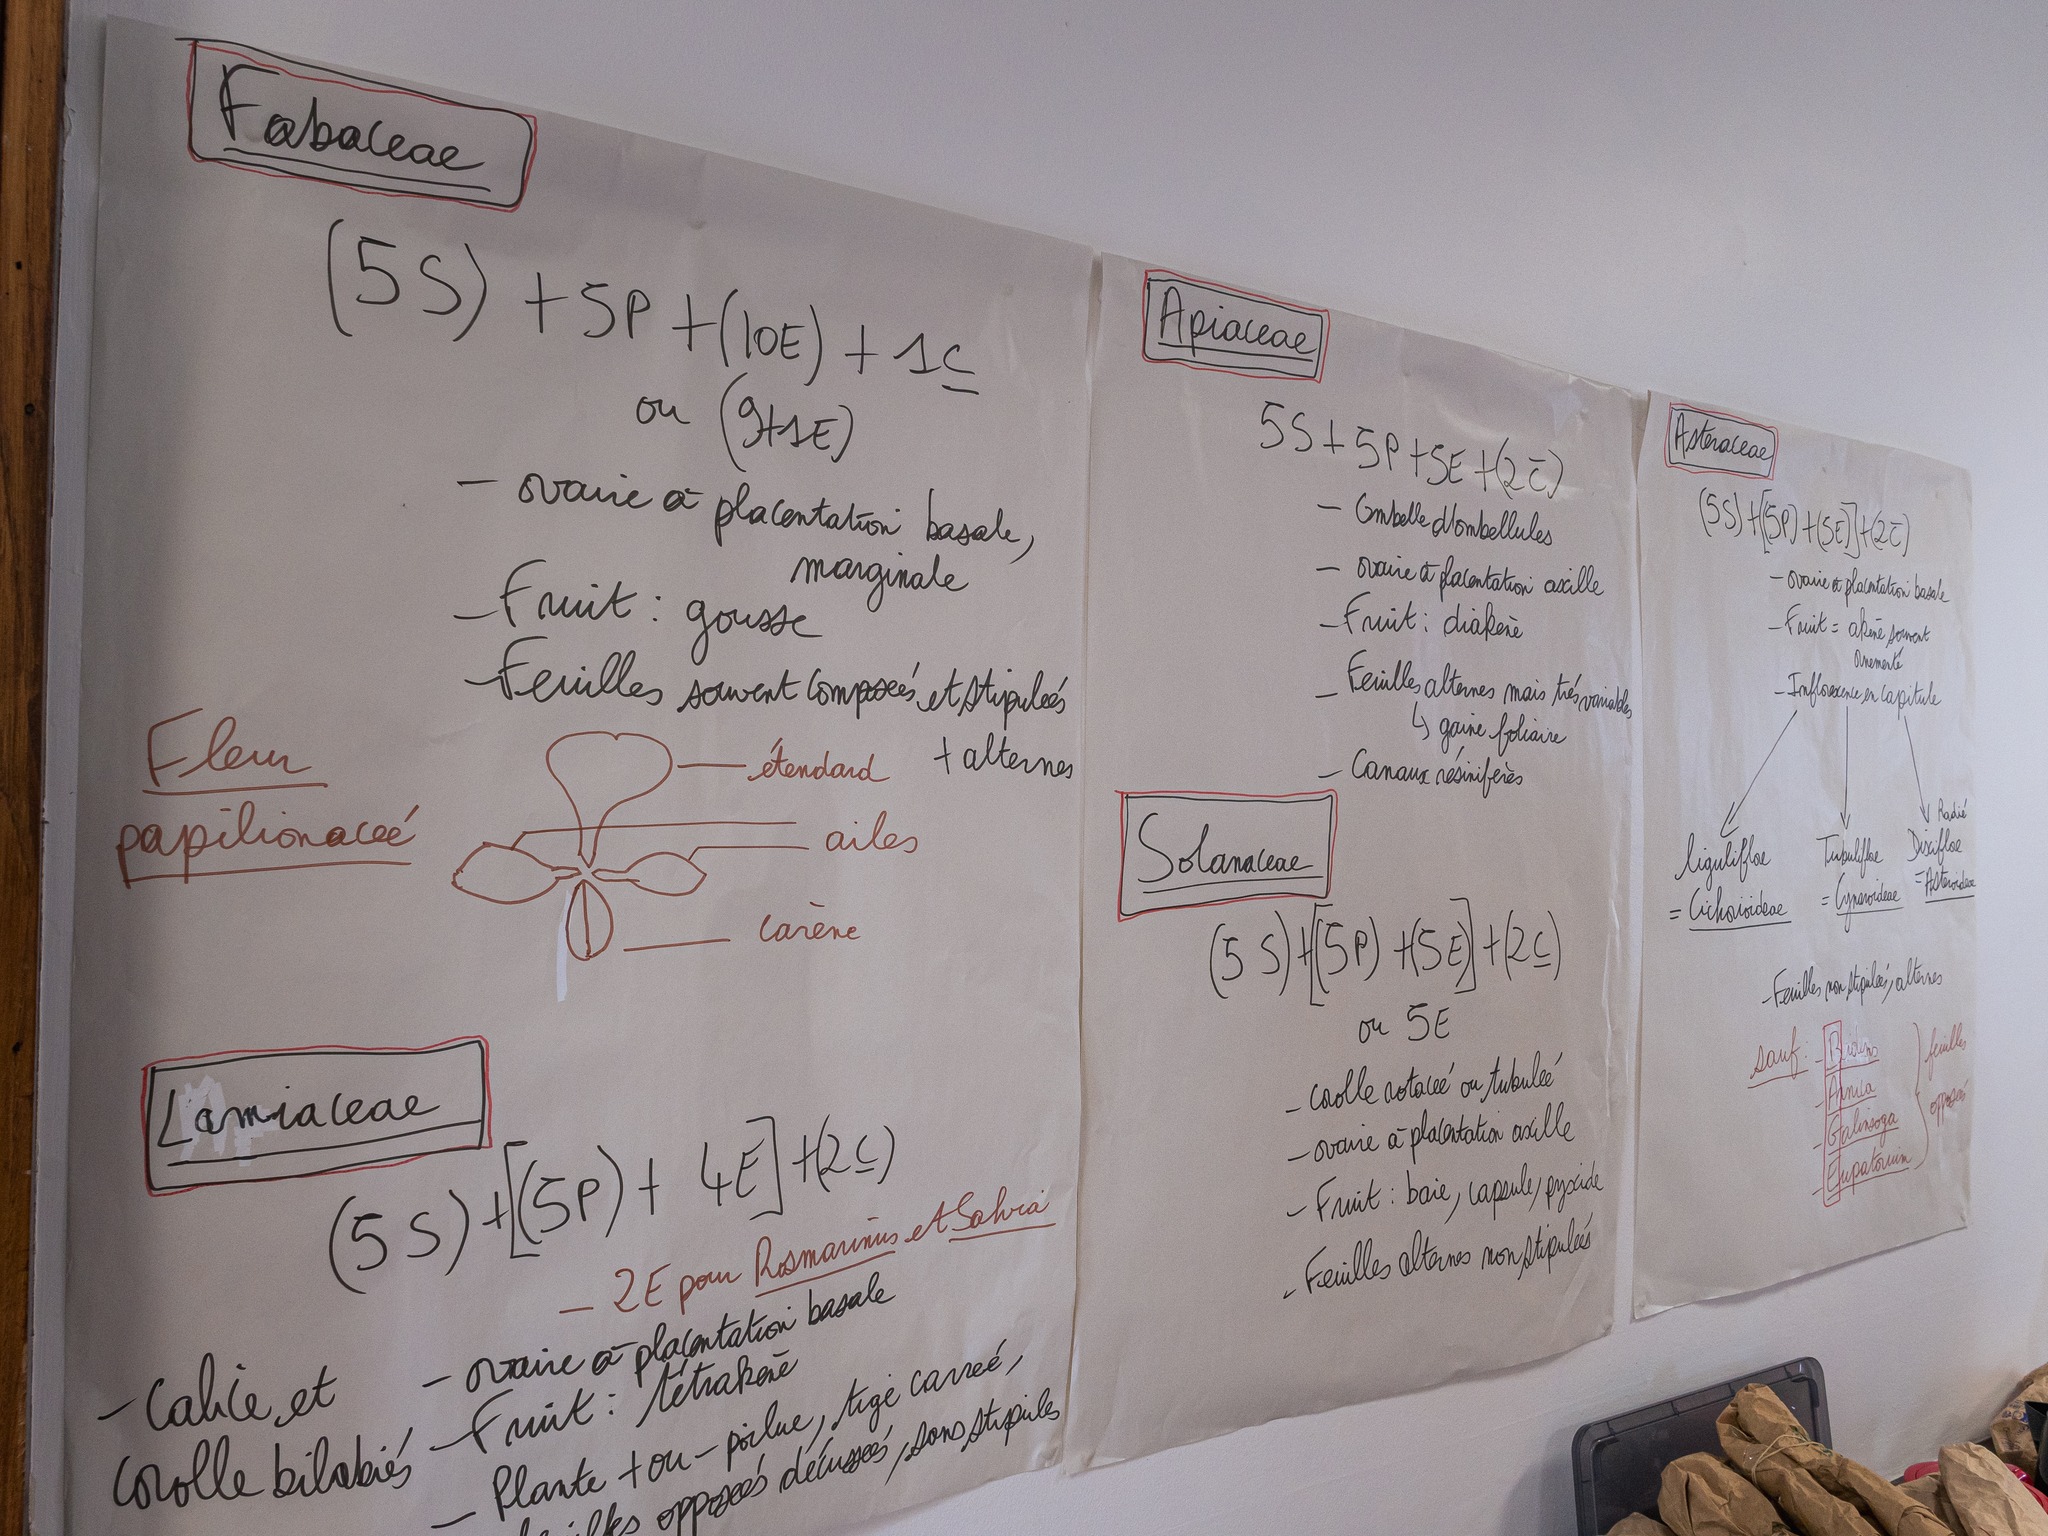 Fabaceae
(5S) + 5P + (10E) + 1C
ou (9+1E)
- ovaire à placentation basale,
marginale
- Fruit : gousse
- Feuilles souvent composées, et stipulées
+ alternes
Fleur
papilionacée
étendard
ailes
carène
Lamiaceae
(5S) + [(5P) + 4E] + (2C)
- 2E pour Rosmarinus et Salvia
- Calice, et
corolle bilabiés
- ovaire à placentation basale
- Fruit : tétrakène
- Plante + ou - poilue, tige carrée,
feuilles opposées décussées, sans stipules
Apiaceae
5S + 5P + 5E + (2C̄)
- Ombelle d'ombellules
- ovaire à placentation axille
- Fruit : diakène
- Feuilles alternes mais très variables
↳ gaine foliaire
- Canaux résinifères
Solanaceae
(5S) + [(5P) + (5E)] + (2C)
ou 5E
- corolle rotacée ou tubulée
- ovaire à placentation axille
- Fruit : baie, capsule, pyxide
- Feuilles alternes non stipulées
Asteraceae
(5S) + [(5P) + (5E)] + (2C̄)
- ovaire à placentation basale
- Fruit = akène souvent
ornementé
- Inflorescence en capitule
Liguliflae
= Cichorioideae
Tubuliflae
= Cynaroideae
Radié
Disciflae
= Asteroideae
- Feuilles non stipulées, alternes
sauf : - Bidens
- Arnica
- Galinsoga
- Eupatorium
feuilles
opposées